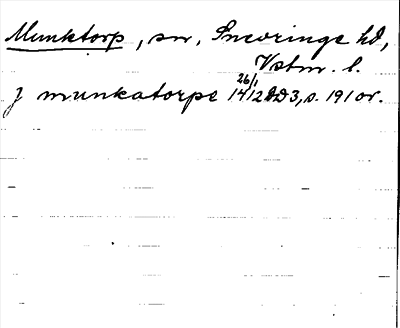 Munktorp, sn, Snevringe hd,
Vstm. l.
j munkatorpe 26/1 1412 SD3, s. 191 or.